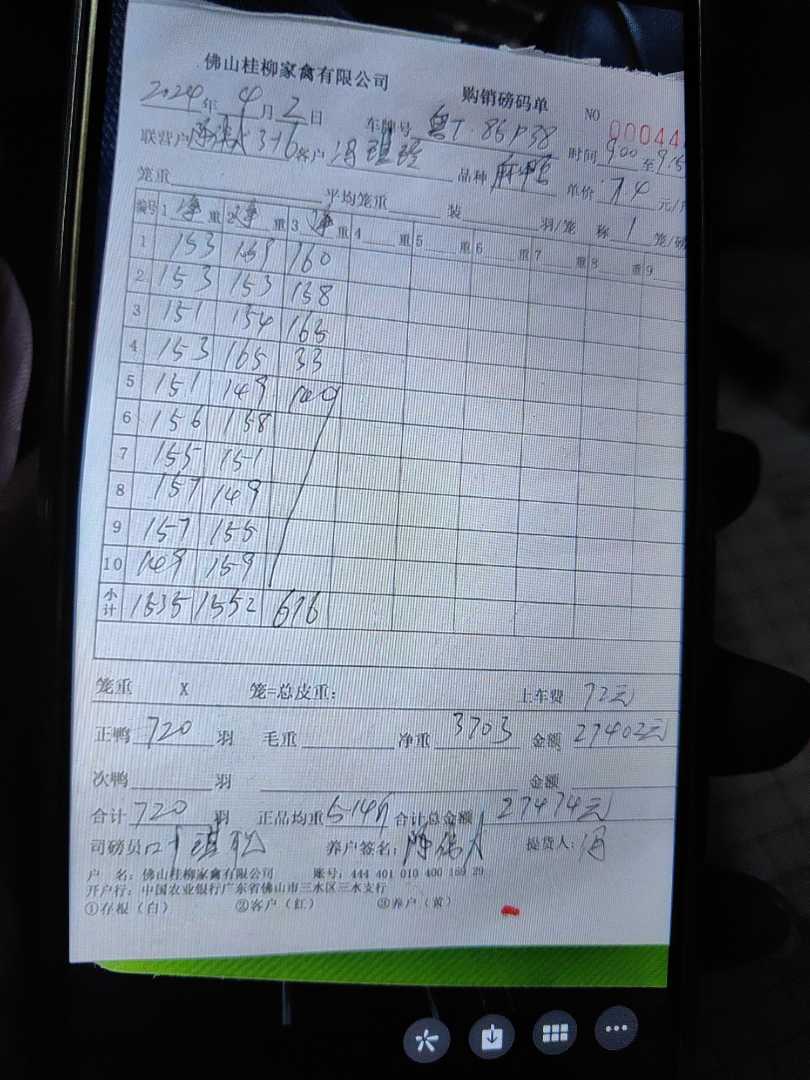 佛山桂柳家禽有限公司 购销磅码单 NO 000444
2024年4月2日 车牌号 粤T·86P38 时间 9:00 至 9:15
联营户 316 客户 冯琪玲 品种 麻鸭 单价 7.4 元/
笼重 平均笼重 装 羽/笼 称 1 笼/磅
编号 1 净 重 2 净 重 3 净 重 4 重 5 重 6 重 7 重 8 重 9
1 153 159 160
2 153 153 158
3 151 154 165
4 153 165 33
5 151 149
6 156 158
7 155 151
8 157 149
9 157 155
10 149 159
小计 1535 1552 616
笼重 X 笼=总皮重: 上车费 72元
正鸭 720 羽 毛重 净重 3703 金额 27402元
次鸭 羽 金额
合计 720 羽 正品均重 5.14斤 合计总金额 27474元
司磅员 养户签名: 陈伟 提货人: 冯
户 名: 佛山桂柳家禽有限公司 账号: 444 401 010 400 169 29
开户行: 中国农业银行广东省佛山市三水区三水支行
①存根(白) ②客户(红) ③养户(黄)